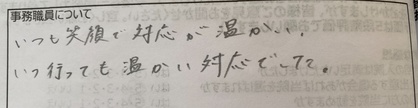 事務職員について
いつも笑顔で対応が温かい。
いつ行っても温かい対応でした。